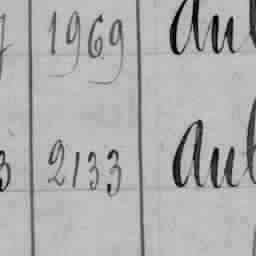 7 1969 Aul
3 2133 Aul